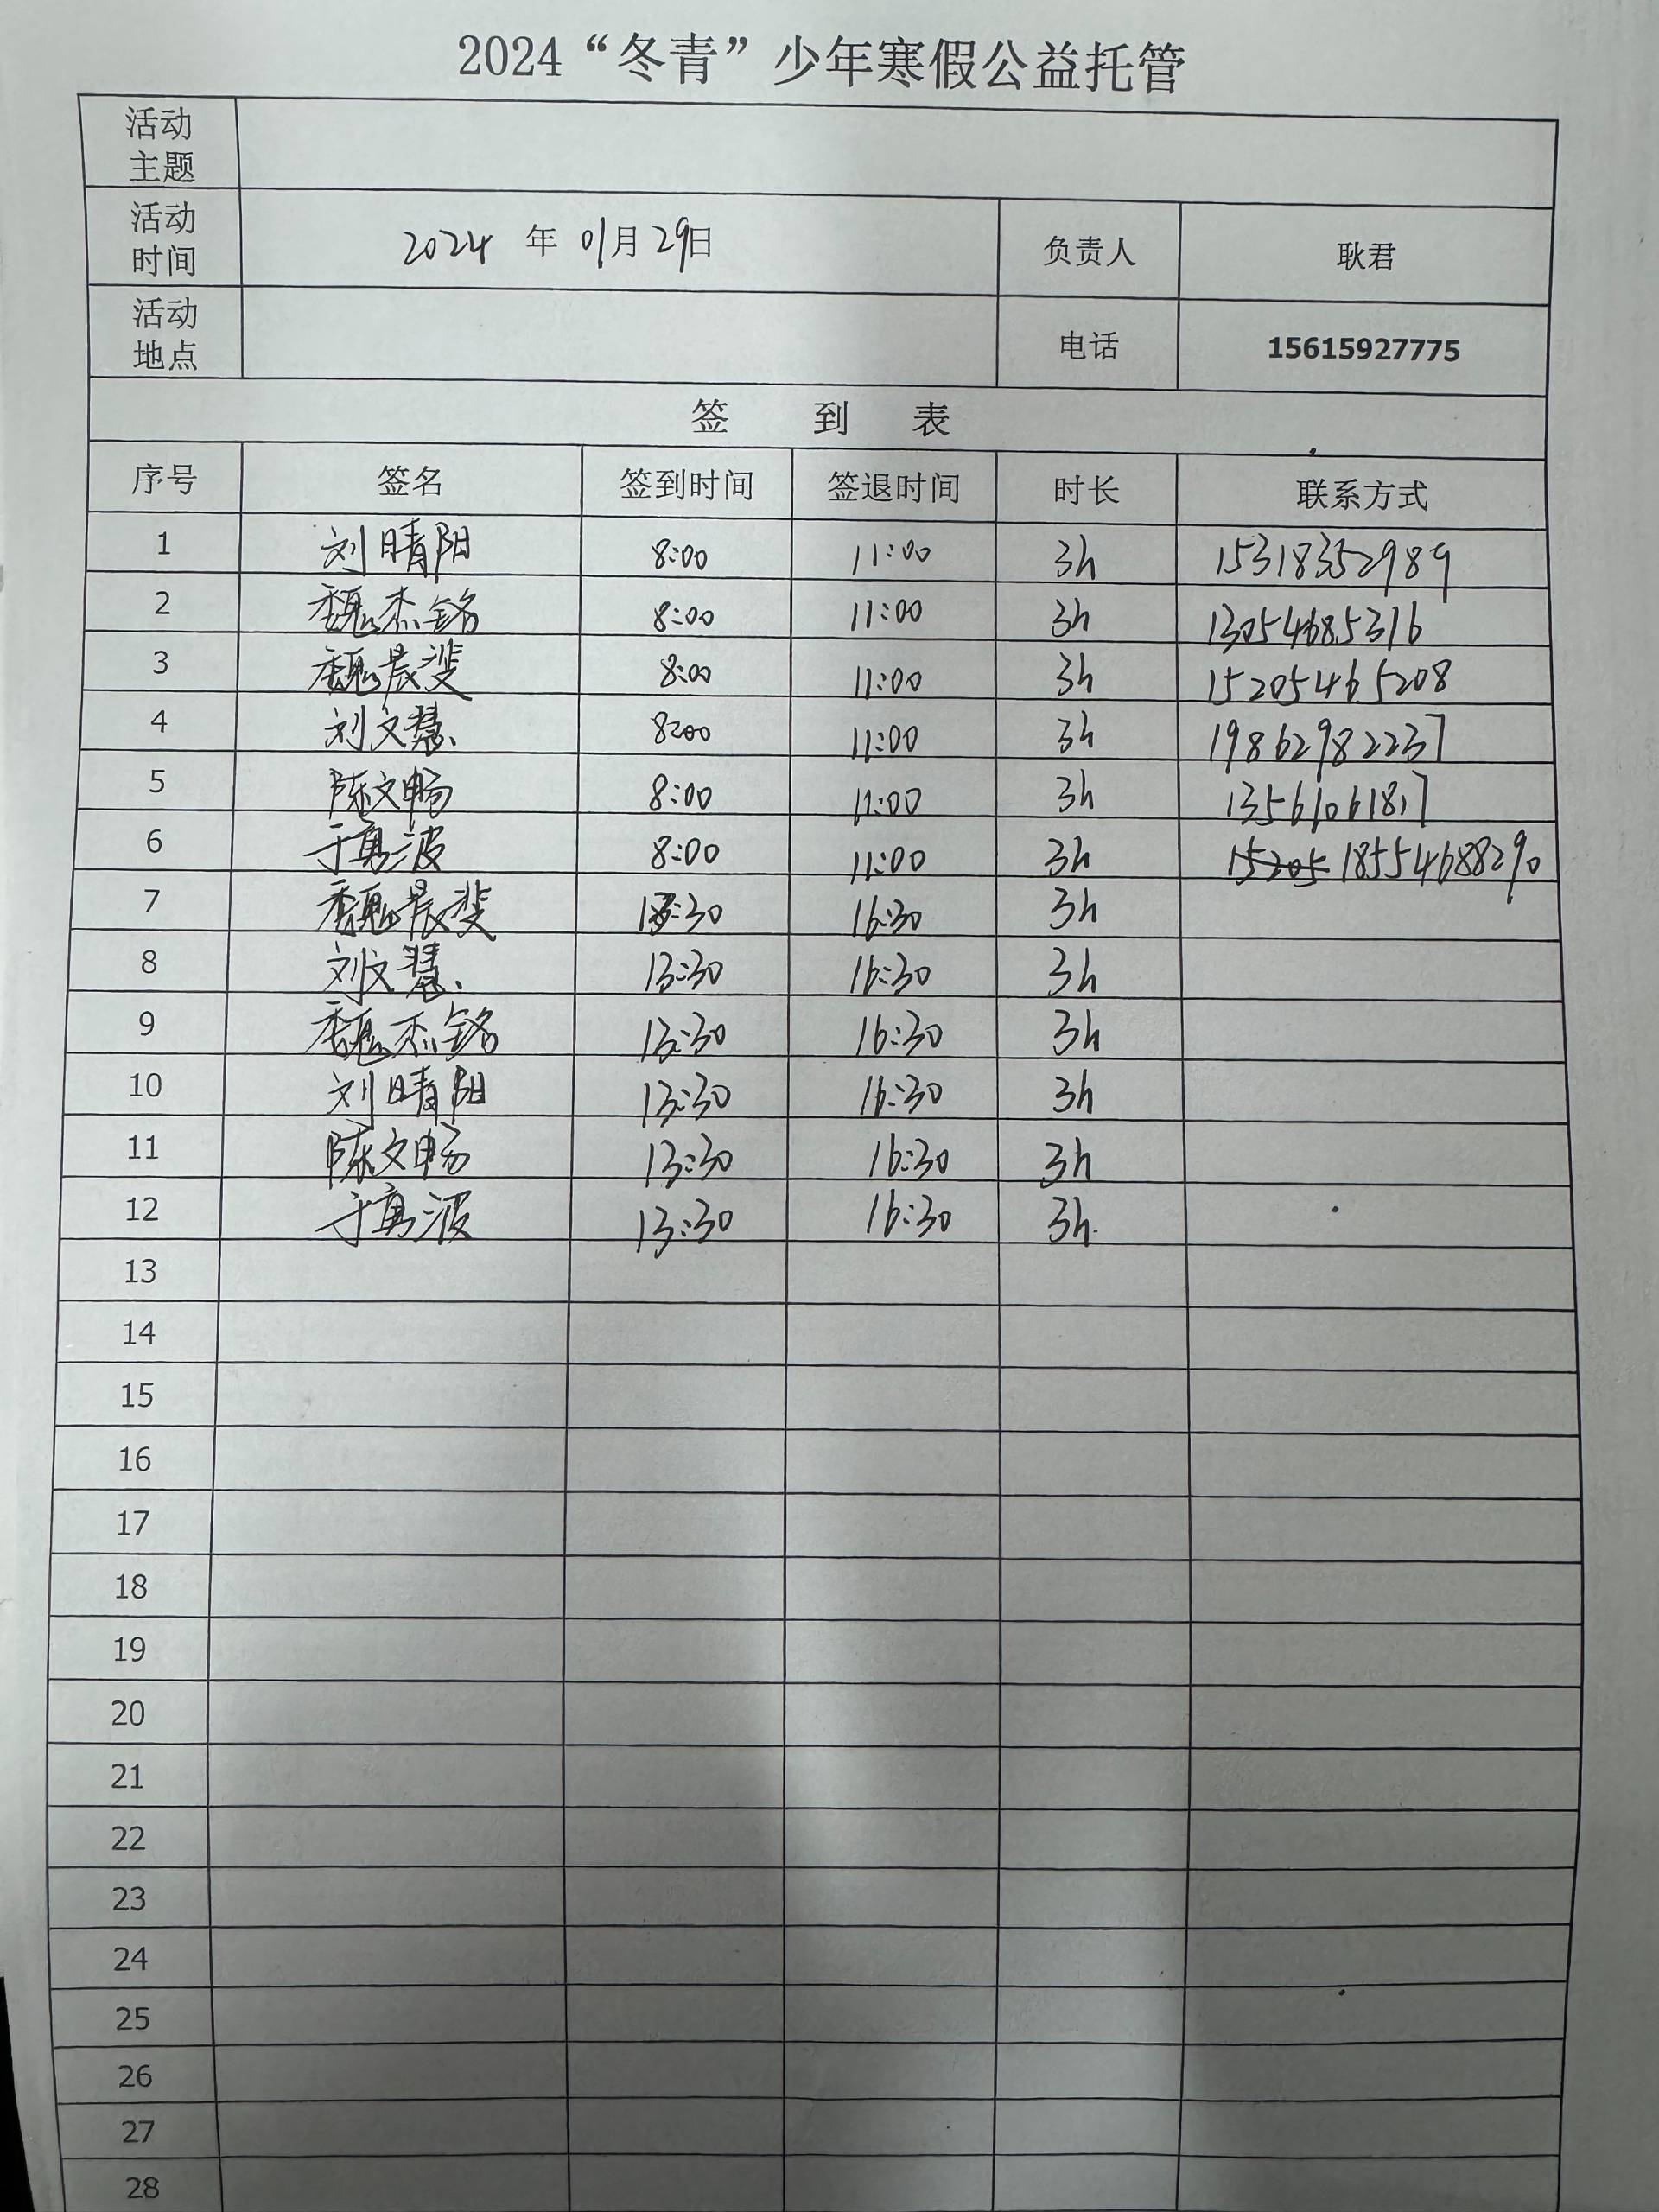 2024“冬青”少年寒假公益托管
活动主题
活动时间 2024 年 01月 29日 负责人 耿君
活动地点 电话 15615927775
签 到 表
序号 签名 签到时间 签退时间 时长 联系方式
1 刘晴阳 8:00 11:00 3h 15318352989
2 魏杰铭 8:00 11:00 3h 13054685316
3 魏晨斐 8:00 11:00 3h 15205465208
4 刘文慧 8:00 11:00 3h 19862982237
5 陈文畅 8:00 11:00 3h 13561061817
6 于勇波 8:00 11:00 3h 18554688290
7 魏晨斐 13:30 16:30 3h
8 刘文慧 13:30 16:30 3h
9 魏杰铭 13:30 16:30 3h
10 刘晴阳 13:30 16:30 3h
11 陈文畅 13:30 16:30 3h
12 于勇波 13:30 16:30 3h
13
14
15
16
17
18
19
20
21
22
23
24
25
26
27
28